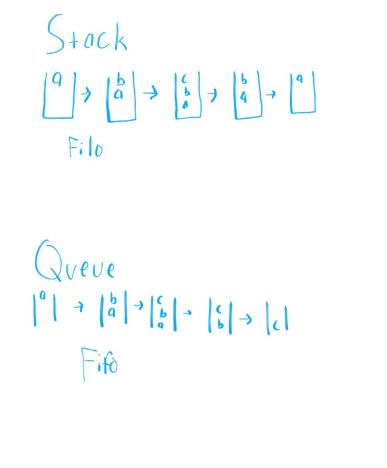 Stack
a → b → c → b → a
a b a
a
Filo
Queue
a → b → c → c → c
a b b
a
Fifo